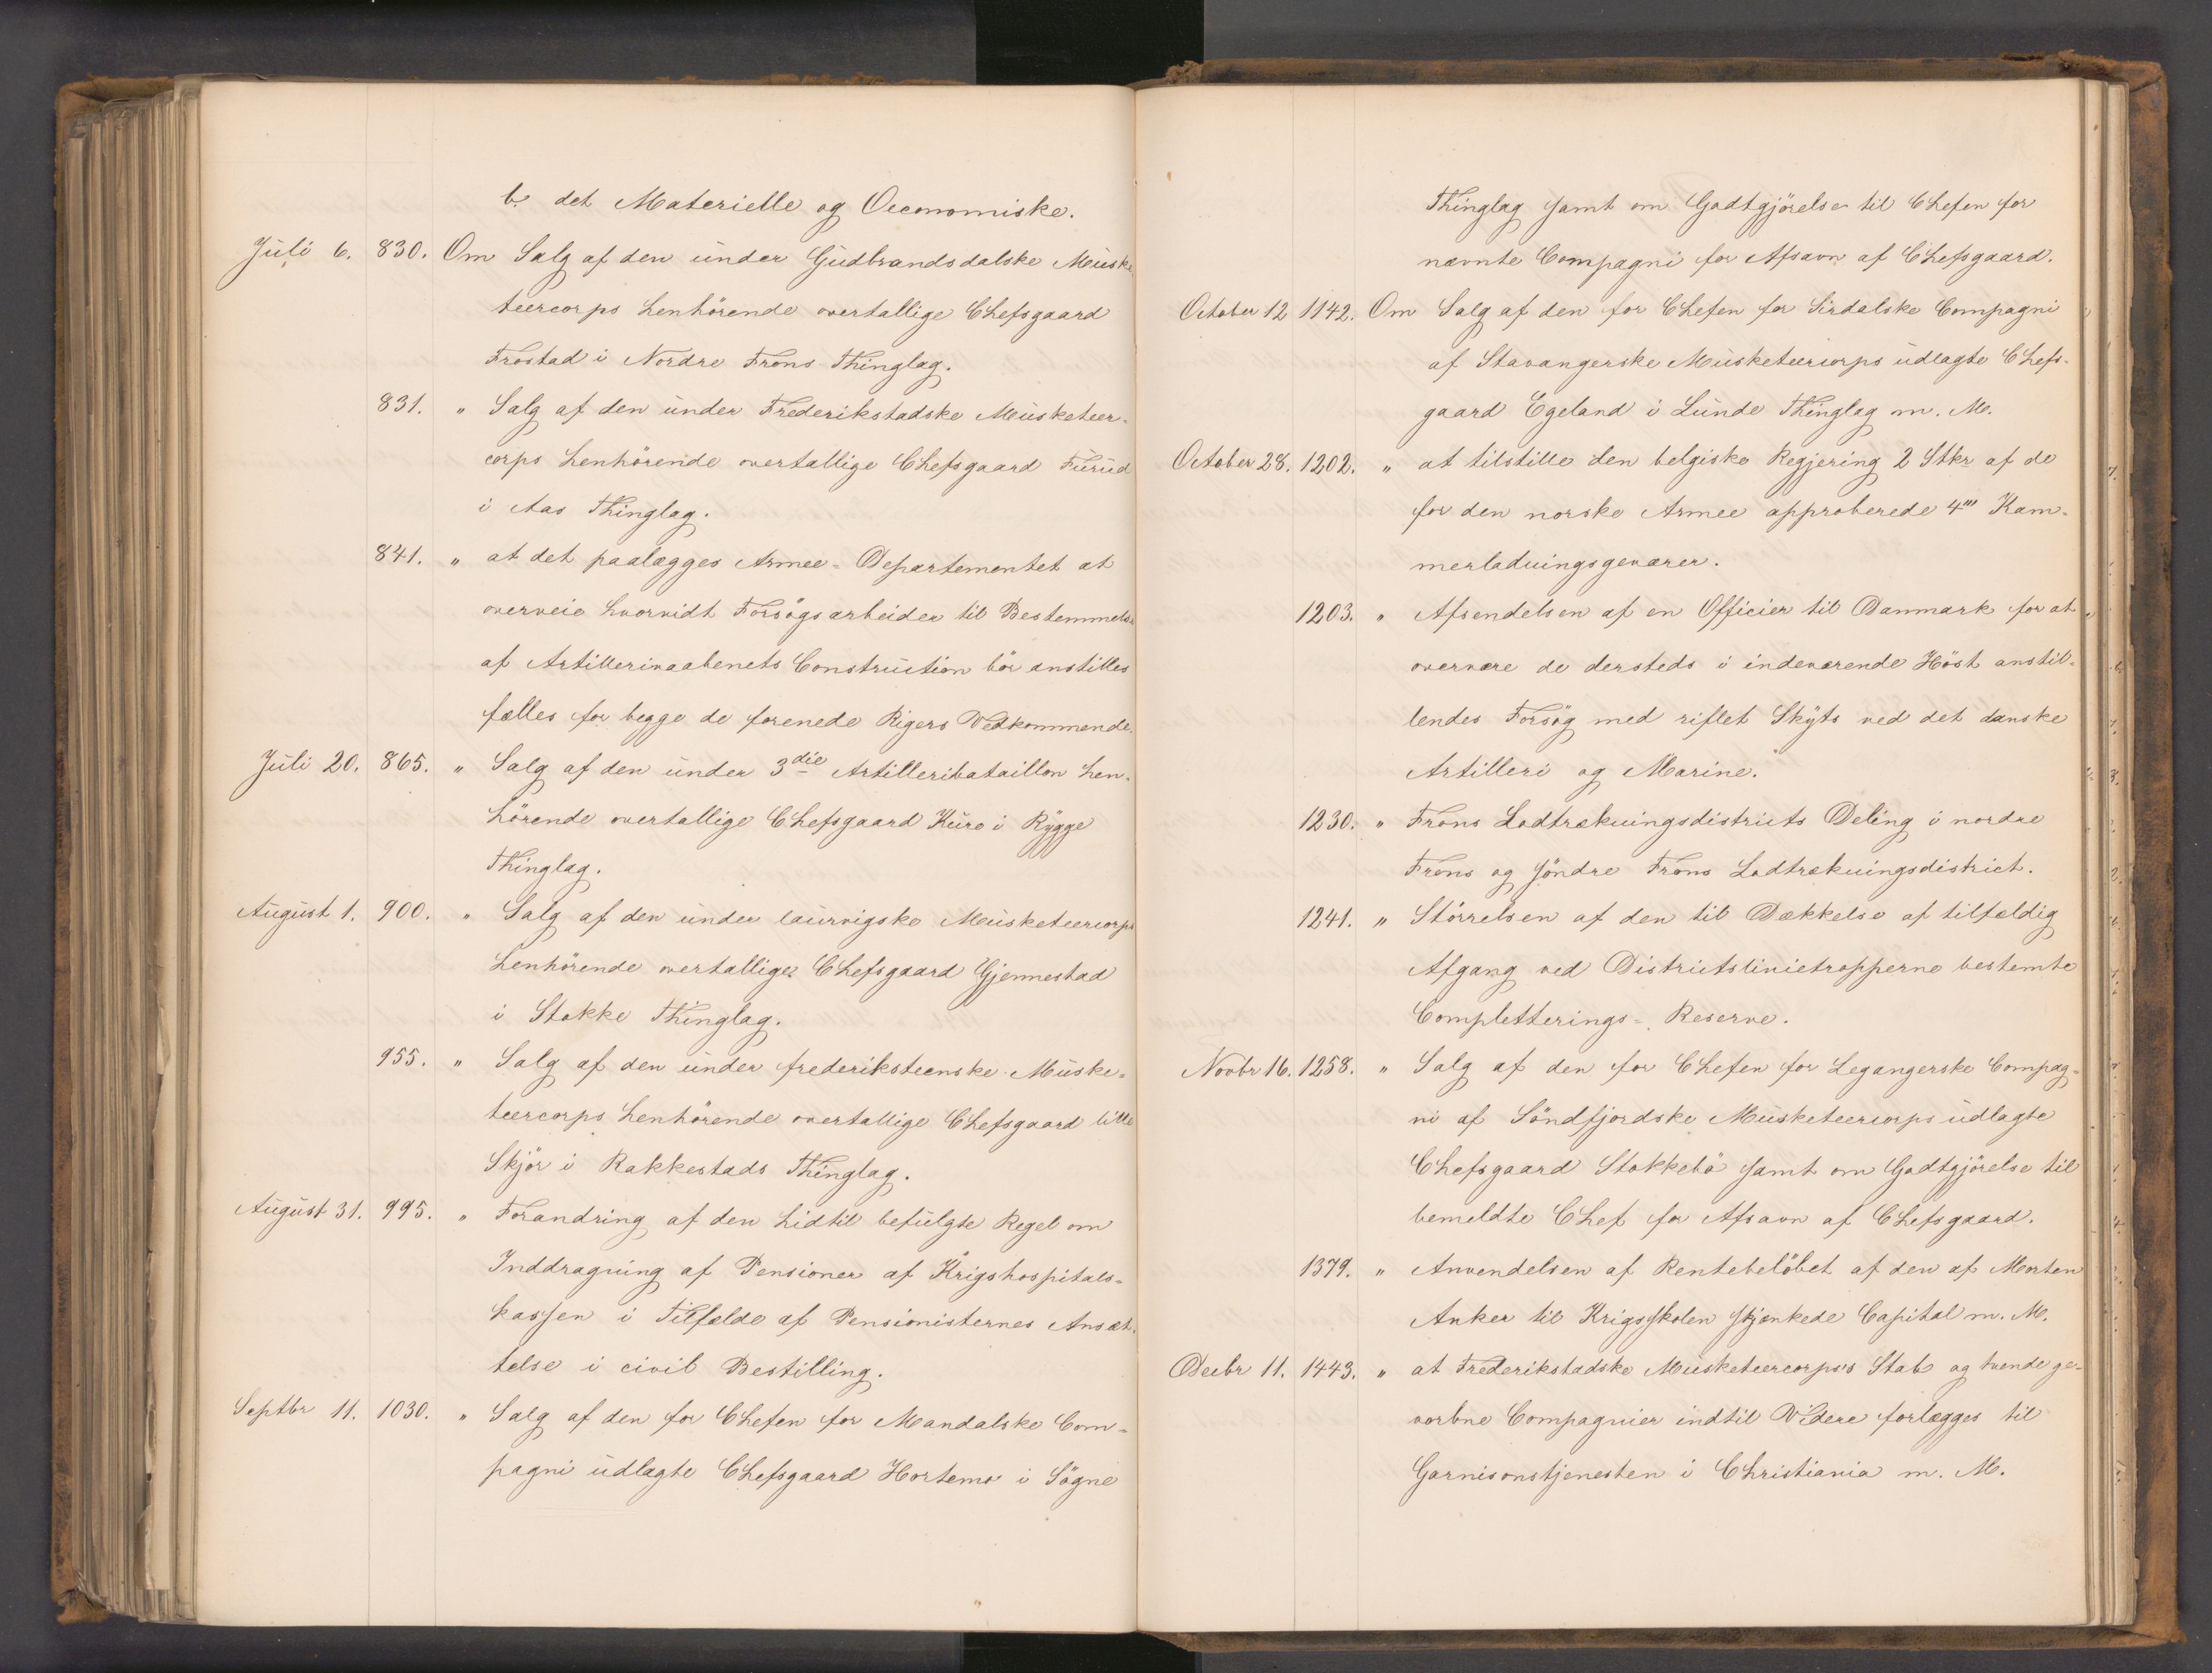 b. det Materielle og Oeconomiske.
Juli 6. 830. Om Salg af den under Gudbrandsdalske Muske
teercorps henhörende overtallige Chefsgaard
Frostad i Nordre Frons Thinglag.
831. " Salg af den under Frederikstadske Musketeer-
corps henhörende overtallige Chefsgaard Furud
i Aas Thinglag.
841. " at det paalægges Armee-Departementet at
overveie hvorvidt Forsögsarbeider til Bestemmelse
af Artillerivaabenets Construction bör anstilles
fælles for begge de forenede Rigers Vedkommende.
Juli 20. 865. " Salg af den under 3die Artilleribataillon hen-
hörende overtallige Chefsgaard Kure i Rygge
Thinglag.
August 1. 900. " Salg af den under laurvigske Musketeercorps
henhörende overtallige Chefsgaard Gjennestad
i Stokke Thinglag.
955. " Salg af den under frederiksteenske Muske-
teercorps henhörende overtallige Chefsgaard lille
Skjör i Rakkestads Thinglag.
August 31. 995. " Forandring af den hidtil befulgte Regel om
Inddragning af Pensioner af Krigshospitals-
kassen i Tilfælde af Pensionisternes Ansæt-
telse i civil Bestilling.
Septbr 11. 1030. " Salg af den for Chefen for Mandalske Com-
pagni udlagte Chefsgaard Hortemo i Sögne
Thinglag samt om Godtgjörelse til Chefen for
nævnte Compagni for Afsavn af Chefsgaard.
October 12 1142. Om Salg af den for Chefen for Sirdalske Compagni
af Stavangerske Musketeercorps udlagte Chefs-
gaard Egeland i Lunde Thinglag m. M.
October 28. 1202. " at tilstille den belgiske Regjering 2 Stkr af de
for den norske Armee approberede 4''' Kam-
merladningsgeværer.
1203. " Afsendelsen af en Officier til Danmark for at
overvære de dersteds i indeværende Höst anstil-
lendes Forsög med riflet Skyts ved det danske
Artilleri og Marine.
1230. " Frons Lodtrækningsdistricts Deling i nordre
Frons og söndre Frons Lodtrækningsdistrict.
1241. " Störrelsen af den til Dækkelse af tilfældig
Afgang ved Districtslinietropperne bestemte
Completterings-Reserve.
Novbr 16. 1258. " Salg af den for Chefen for Legangerske Compag-
ni af Söndfjordske Musketeercorps udlagte
Chefsgaard Stokkebö samt om Godtgjörelse til
bemeldte Chef for Afsavn af Chefsgaard.
1379. " Anvendelsen af Rentebelöbet af den af Morten
Anker til Krigsskolen skjænkede Capital m. M.
Decbr 11. 1443. " at Frederikstadske Musketeercorps's Stab og tvende ge-
vorbne Compagnier indtil Videre forlægges til
Garnisonstjenesten i Christiania m. M.